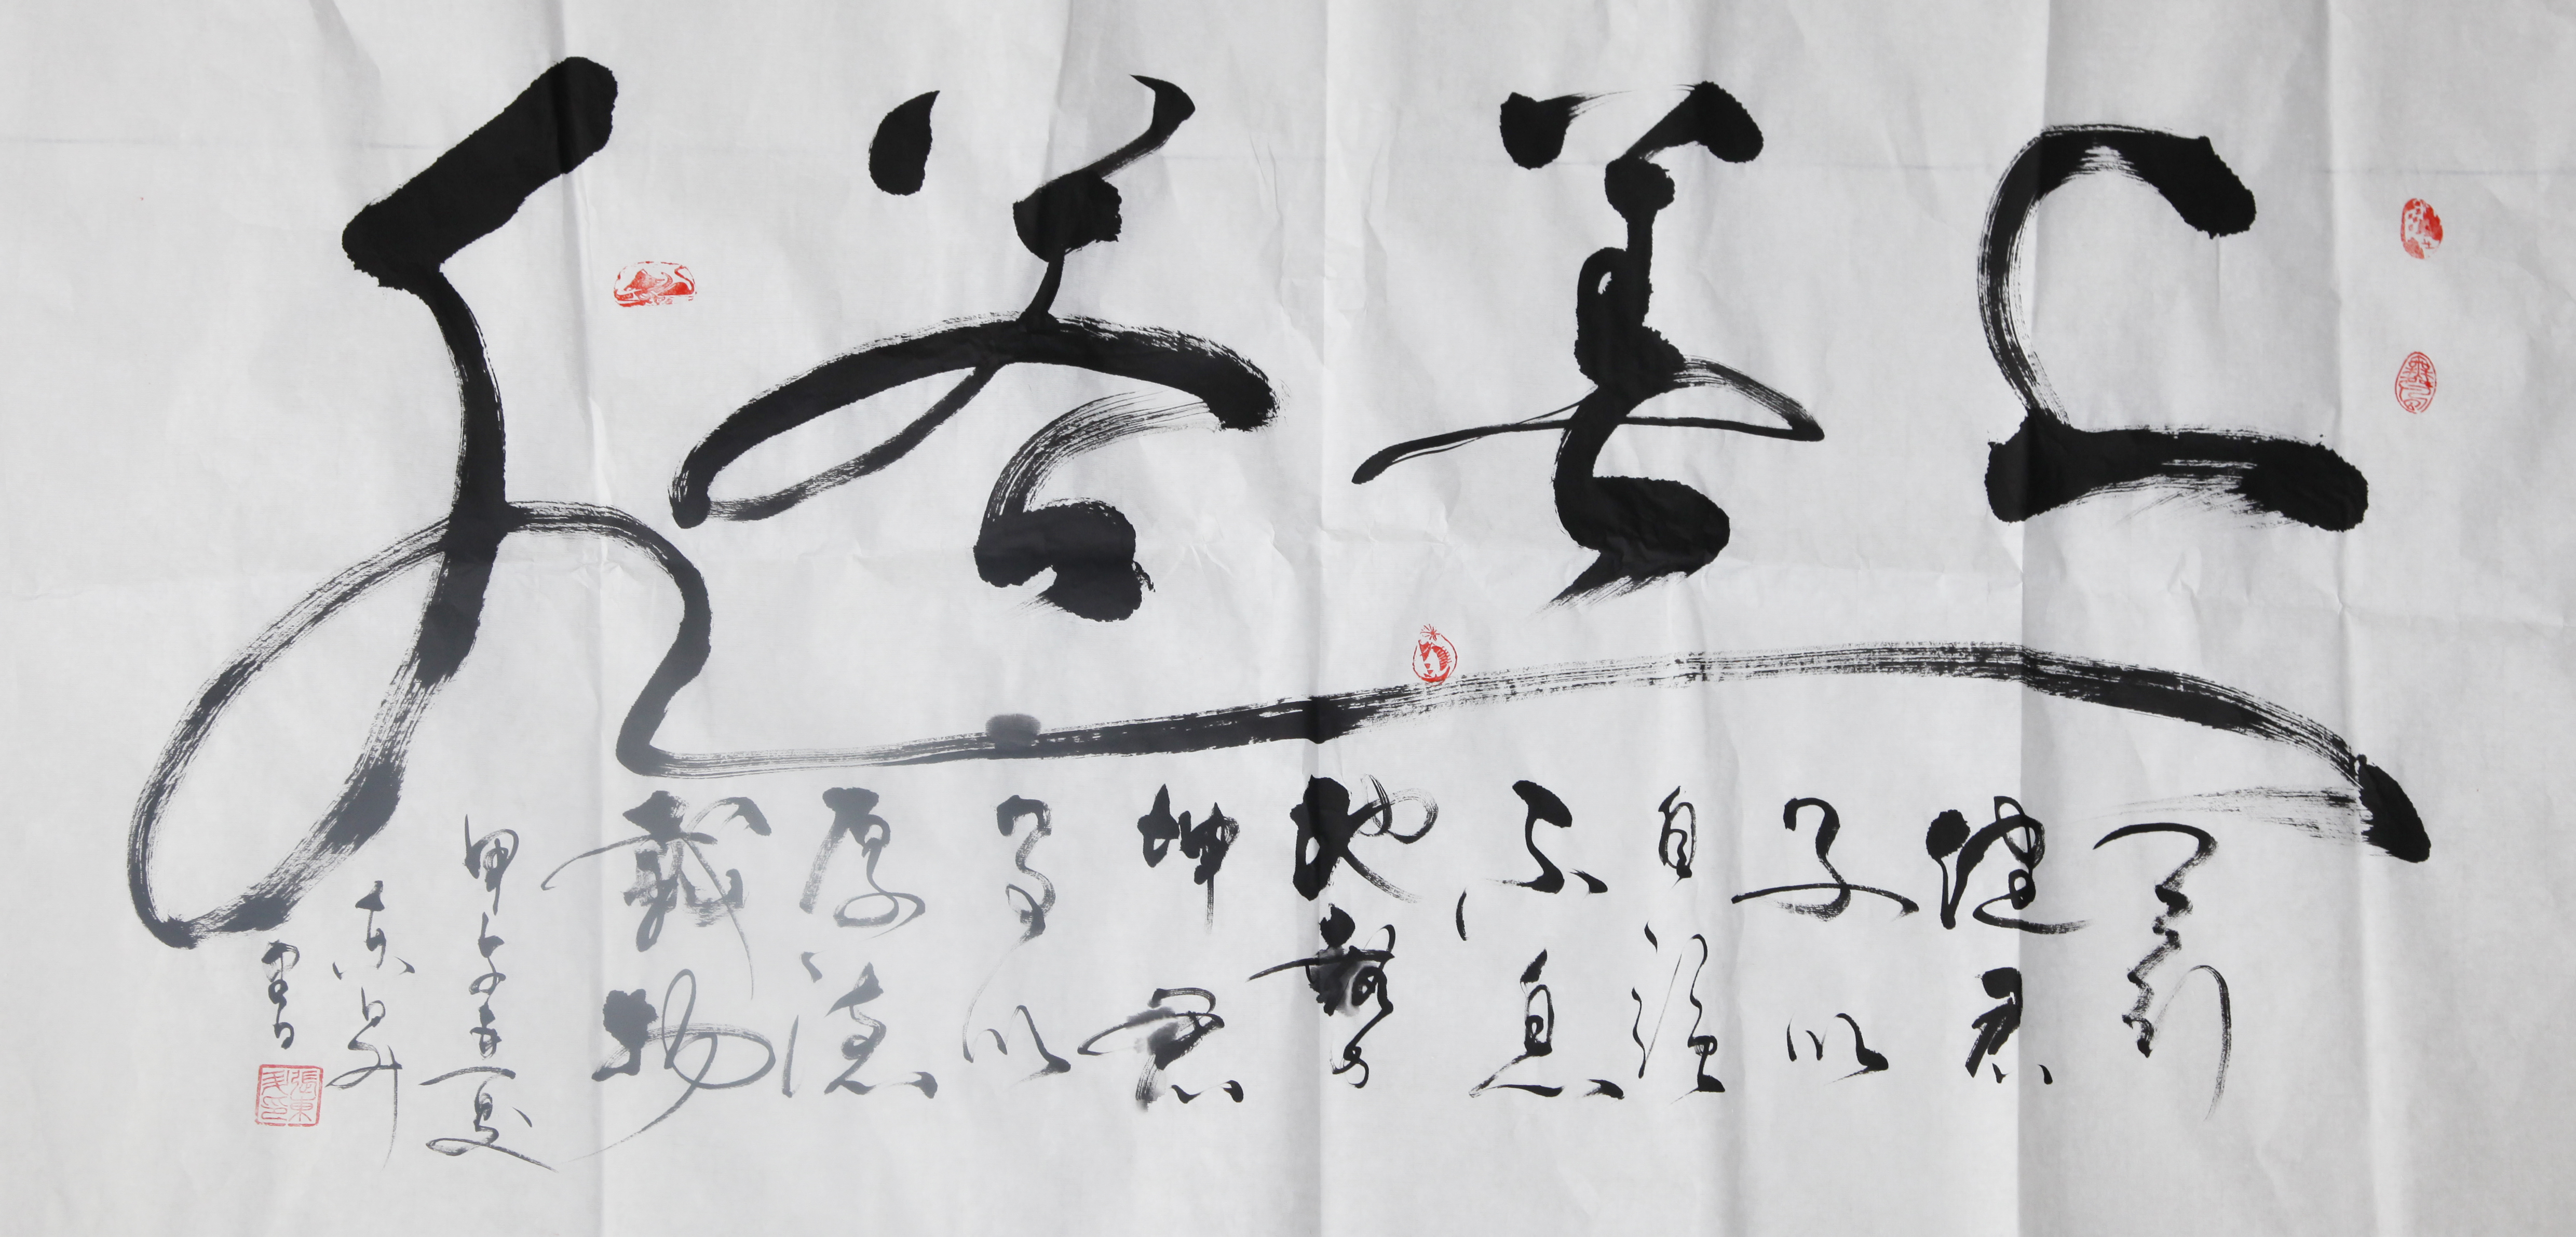 上善若水
天行
健君
子以
自強
不息
地勢
坤君
子以
厚德
載物
甲午年夏
东昇
書